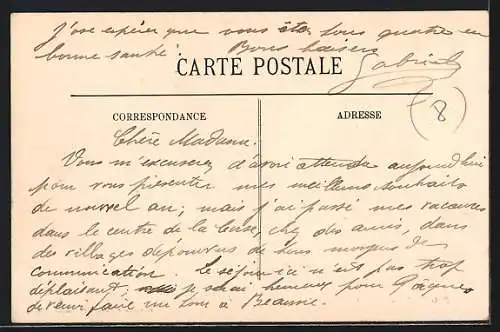 J'ose espérer que vous êtes tous quatre en
bonne santé. Bons baisers
Gabriel
CARTE POSTALE
CORRESPONDANCE
ADRESSE
8
Chère Madame.
Vous m'excuserez d'avoir attendu aujourd'hui
pour vous présenter mes meilleurs souhaits
de nouvel an; mais j'ai passé mes vacances
dans le centre de la Corse, chez des amis, dans
des villages dépourvus de tous moyens de
communication. Le séjour ici n'est pas trop
déplaisant, je serai heureux pour Pâques
de venir faire un tour à Beaune.